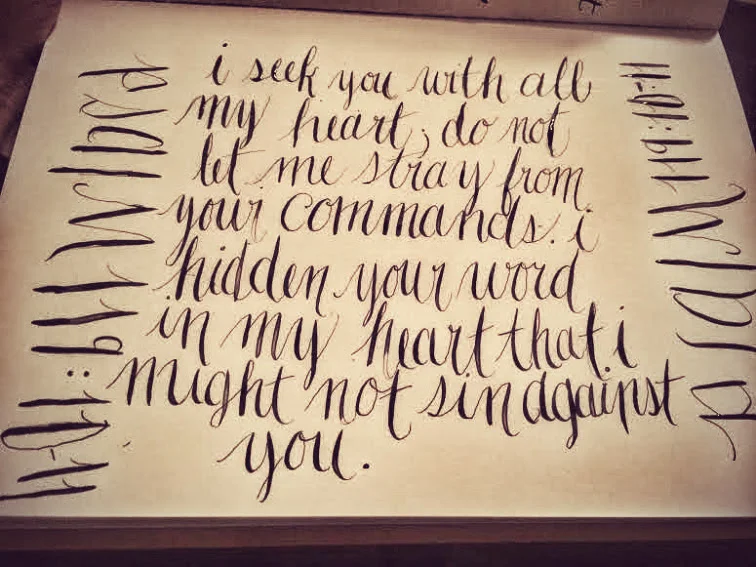 i seek you with all
my heart; do not
let me stray from
your commands. i
hidden your word
in my heart that i
might not sin against
you.
psalm 119:10-11
psalm 119:10-11